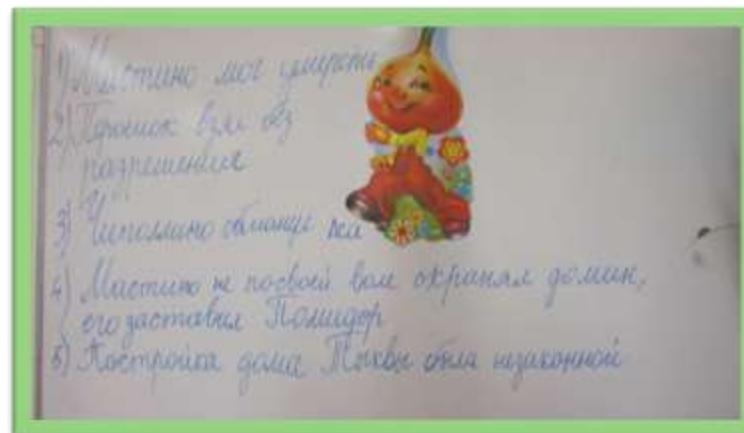 1) Мастино мог умереть
2) Порошок взял без
разрешения
3) Чиполлино обманул пса
4) Мастино не по своей воле охранял домик,
его заставил Помидор
5) Постройка дома Тыквы была незаконной